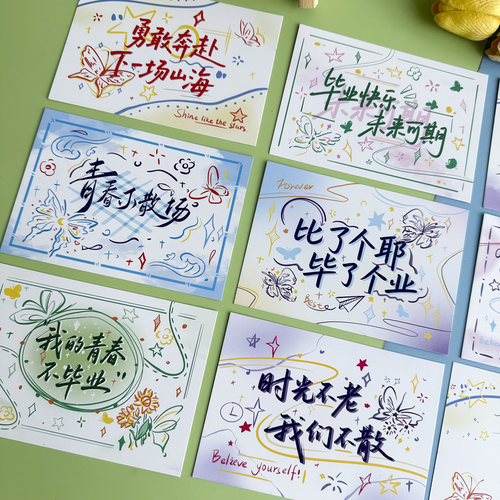 勇敢奔赴
下一场山海
Shine like the stars
毕业快乐
未来可期
青春不散场
Forever
比了个耶
毕了个业
我的青春
不毕业
时光不老
我们不散
Believe yourself!